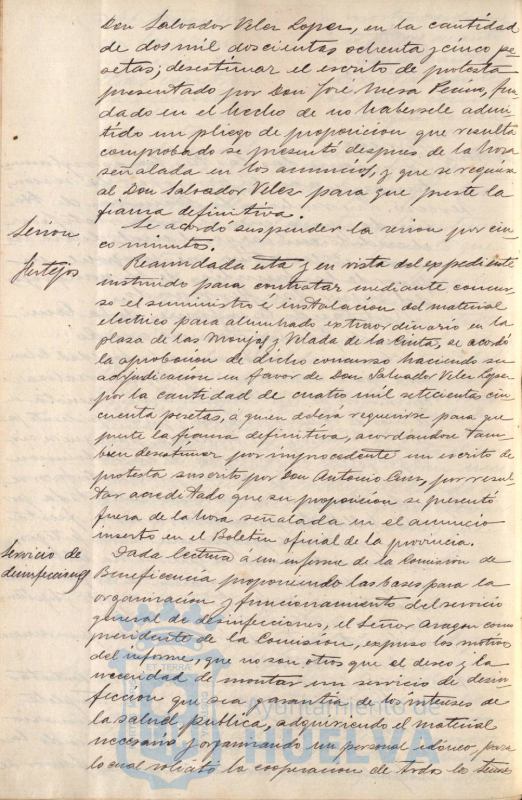 Don Salvador Velez Lopez, en la cantidad
de dos mil doscientas ochenta y cinco pe-
setas; desestimar el escrito de protesta
presentado por Don José Mesa, fun-
dado en el hecho de no habersele admi-
tido un pliego de proposicion que resulta
comprobado se presentó despues de la hora
señalada en los anuncios, y que se requiera
al Don Salvador Velez para que preste la
fianza definitiva.
Sesion
Se acordó suspender la sesion por cin-
co minutos.
Festejos
Reanudada esta y en vista del expediente
instruido para contratar mediante concur-
so el suministro é instalacion del material
electrico para alumbrado extraordinario en la
plaza de las Monjas y Velada de la Cinta, se acordó
la aprobacion de dicho concurso haciendo su
adjudicación en favor de Don Salvador Velez Lopez
por la cantidad de cuatro mil setecientas cin-
cuenta pesetas, á quien deberá requerirse para que
preste la fianza definitiva, acordandose tam-
bien desestimar por improcedente un escrito de
protesta suscrito por Don Antonio Cruz, por resul-
tar acreditado que su proposicion se presentó
fuera de la hora señalada en el anuncio
inserto en el Boletin oficial de la provincia.
Servicio de
desinfecciones
Dada lectura á un informe de la Comision de
Beneficencia proponiendo las bases para la
organizacion y funcionamiento del servicio
general de desinfecciones, el Señor Aragon como
presidente de la Comisión, expuso los motivos
del informe, que no son otros que el deseo y la
necesidad de montar un servicio de desin-
fección que sea garantia de los intereses de
la salud publica, adquiriendo el material
necesario y organizando un personal idóneo, para
lo cual solicitó la cooperacion de todos los Seño-
Ayuntamiento de
HUELVA